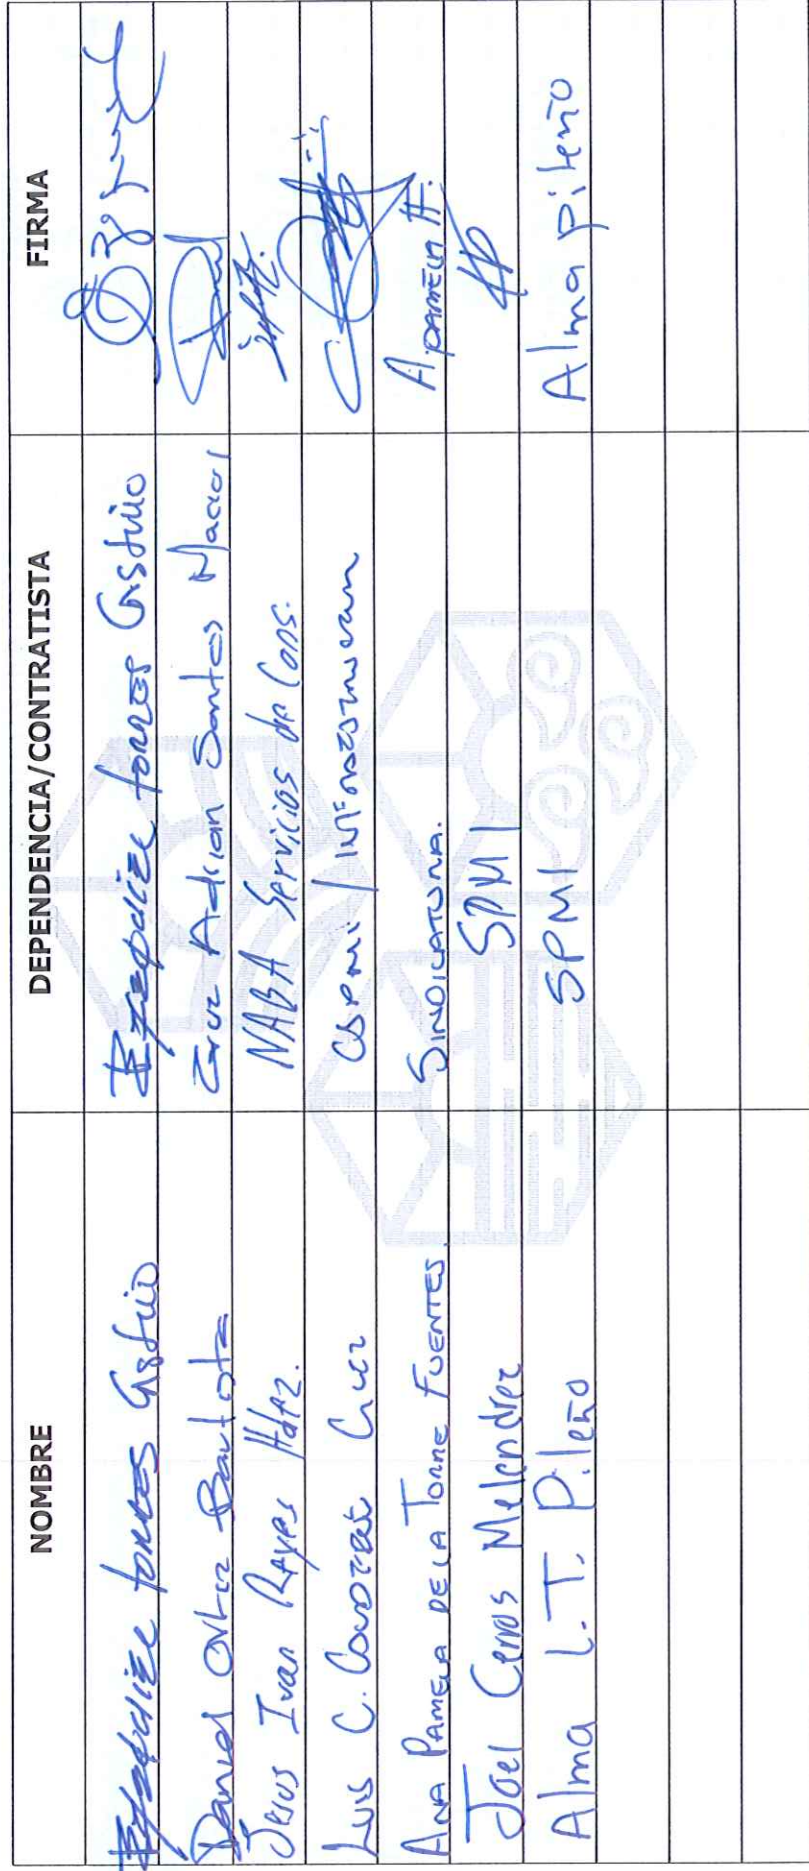 NOMBRE DEPENDENCIA/CONTRATISTA FIRMA
Torres Castillo Torres Castillo
Daniel Ortiz Bautista Cruz Adrian Santos Macial
Jesus Ivan Reyes Hdez. NABA Servicios de Cons.
Luis C. Cruz
ANA PAMELA DE LA TORRE FUENTES SINDICATURA. A. PAMELA H.
Joel Cerros Melendrez SPMI
Alma L.T. Pileño SPMI Alma pileño